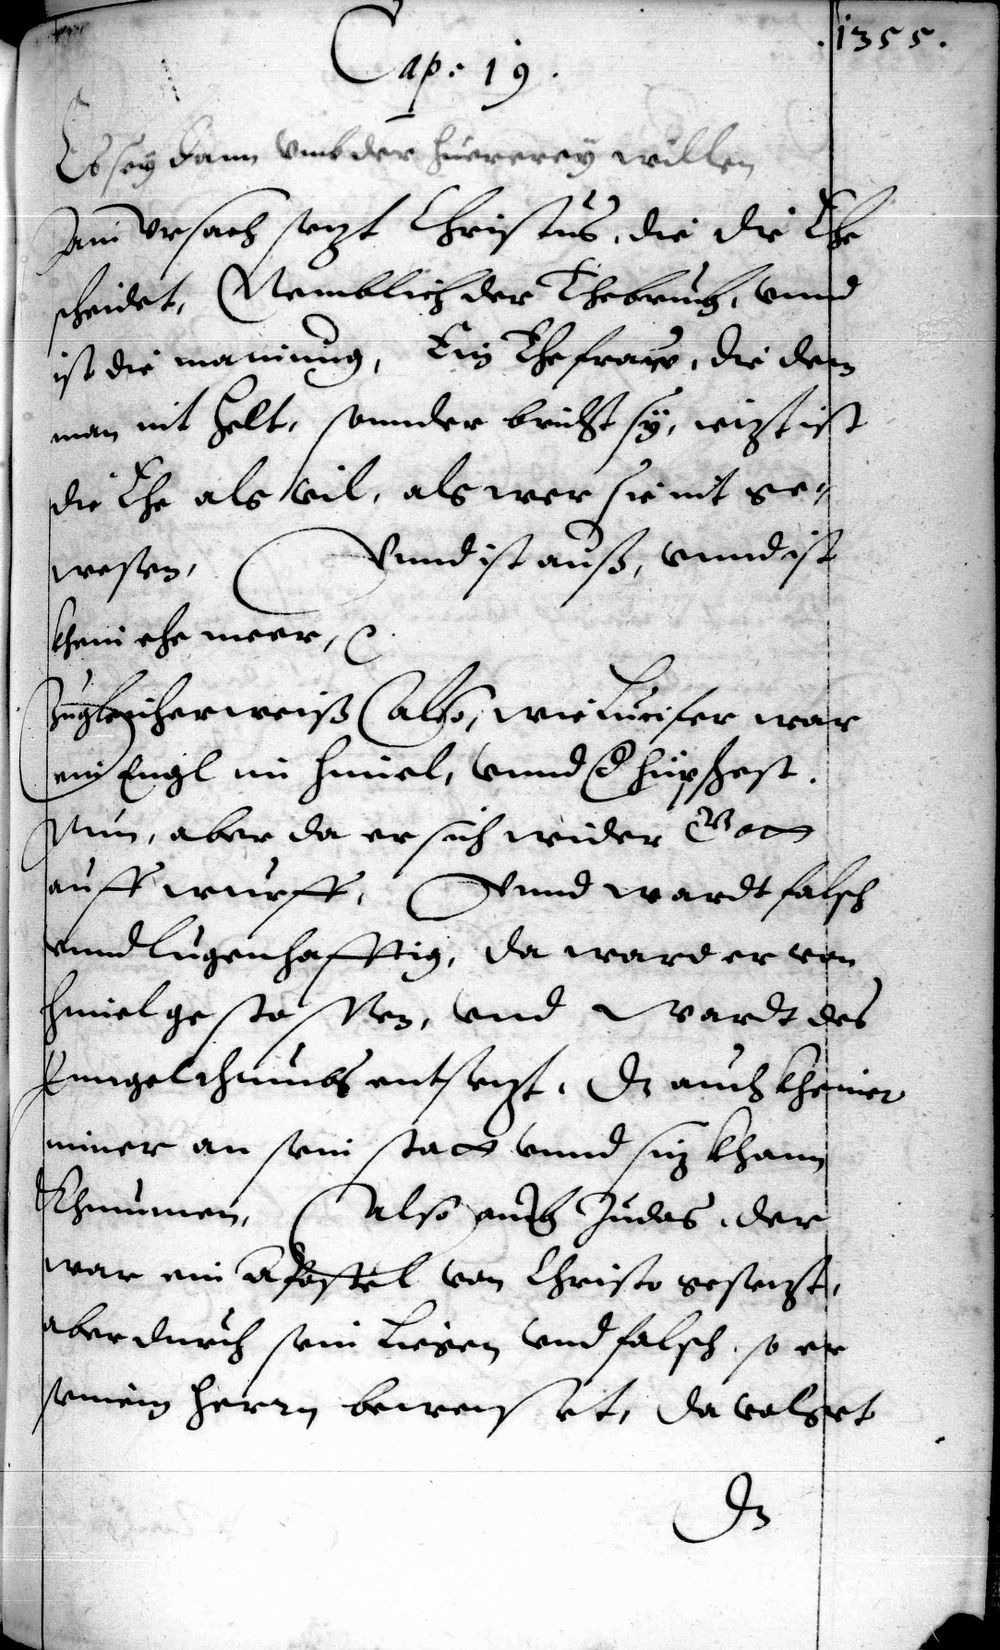 .1355.
Cap: 19.
Es sey dann vmb der huererey willen
Ain Vrsach setzt Christus, die die Ehe
scheidet, Nemblich der Ehebruch, vnnd
ist die mainung, Ein Ehefraw, die dem
man nit helt, sonnder bricht sy, ietzt ist
die Ehe als vil, als wer sie nit ge-
wesen, Vnnd ist auß, vnnd ist
khein ehe meer,
Zugleicherweiß also, wie Lucifer war
ein Engl im himel, vnnd d hüpschest.
Nun, aber da er sich wider Gott
auffwurff, Vnnd wardt falsch
vnnd lugenhafftig, da ward er von
himel gestossen, vnd wardt des
Enngelthumbs entsetzt. Dz auch kheiner
nimer an sein statt vnnd sitz khann
khommen, Also auch Judas, der
war ein Apostel von Christo gesetzt,
aber durch sein Liegen vnd falsch, so er
seinem herrn beweiset, da volget
Dz